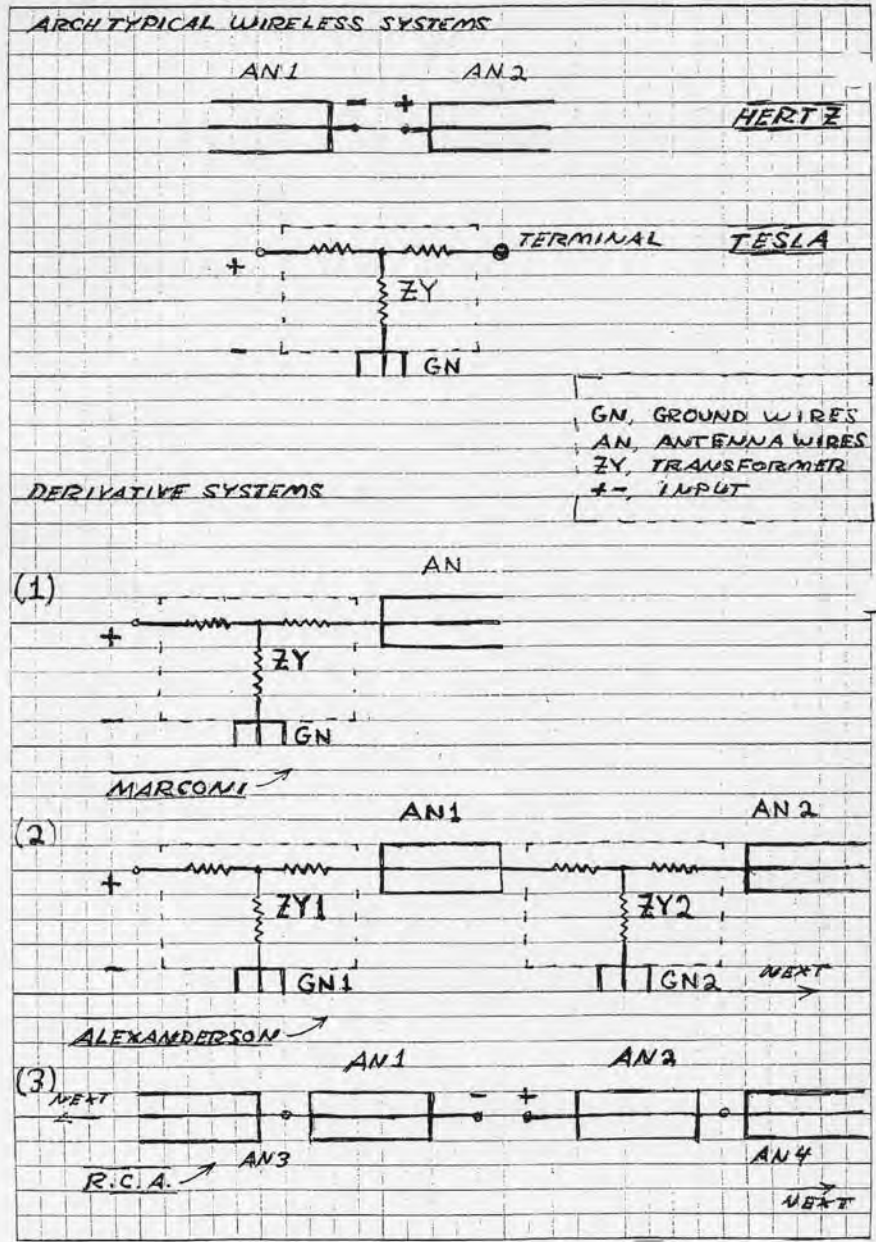 ARCHTYPICAL WIRELESS SYSTEMS
AN1 AN2
- +
HERTZ
TERMINAL TESLA
+
ZY
-
GN
GN, GROUND WIRES
AN, ANTENNA WIRES
ZY, TRANSFORMER
+-, INPUT
DERIVATIVE SYSTEMS
AN
(1)
+
ZY
-
GN
MARCONI
AN1 AN2
(2)
+
ZY1 ZY2
-
GN1 GN2 NEXT
ALEXANDERSON
AN1 AN2
(3)
NEXT - +
AN3 AN4
R.C.A.
NEXT